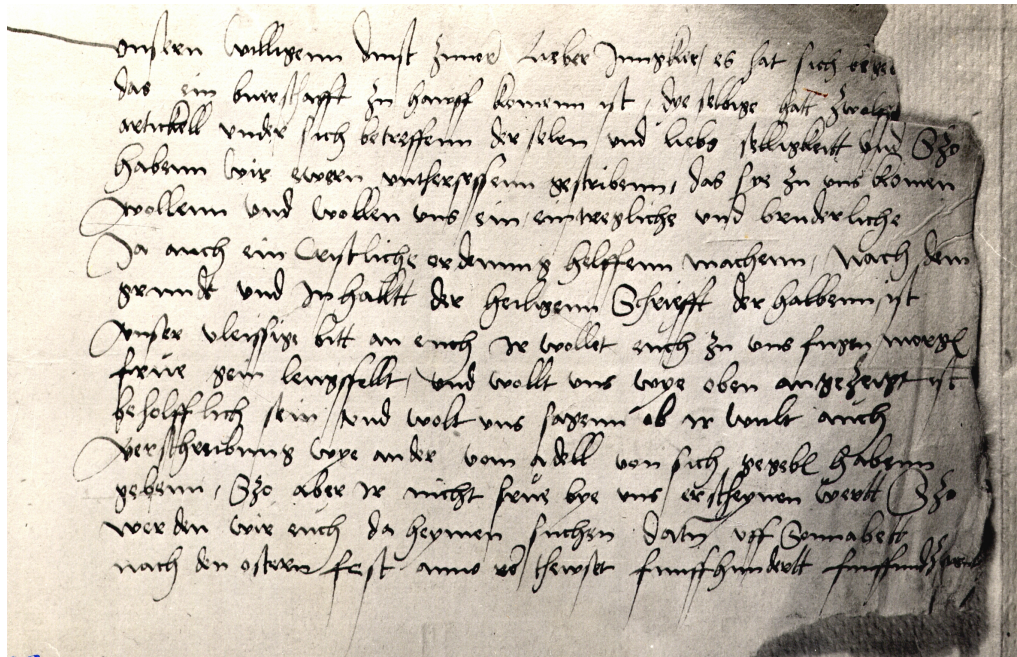 vnsern willigenn dinst zuuor Lieber Jungkher, es hat sich
das ein buerschafft zu hauff komenn ist, dye selbige hatt zwolff
artickell vnder sich betreffenn der selen vnd liebs selligkeitt vnd Szo
habenn wir ewern vnthersessenn geschribenn, das sye zu vns komen
wollenn vnd wollen vns ein eintregliche vnd bruderliche
Ja auch ein Cristliche ordenung helffenn machenn, Nach dem
grundt vnd Inhalltt der heiligenn Schriefft der halbenn ist
vnser vleissige bitt an euch Ir wollet euch zu vns fugen morgen
frue gein lengsfellt, vnd wollt vns wye oben angezeigt ist
beholfflich sein vnd wolt vns sagenn ob Ir wult auch
verschreibung wye ander vom adell von sich gegeben habenn
gebenn, Szo aber Ir nicht frue bye vns erscheynen wertt Szo
werden wir euch da heymen suchen datum vff Sonnabett
nach den ostern fest anno thewset funffhundertt